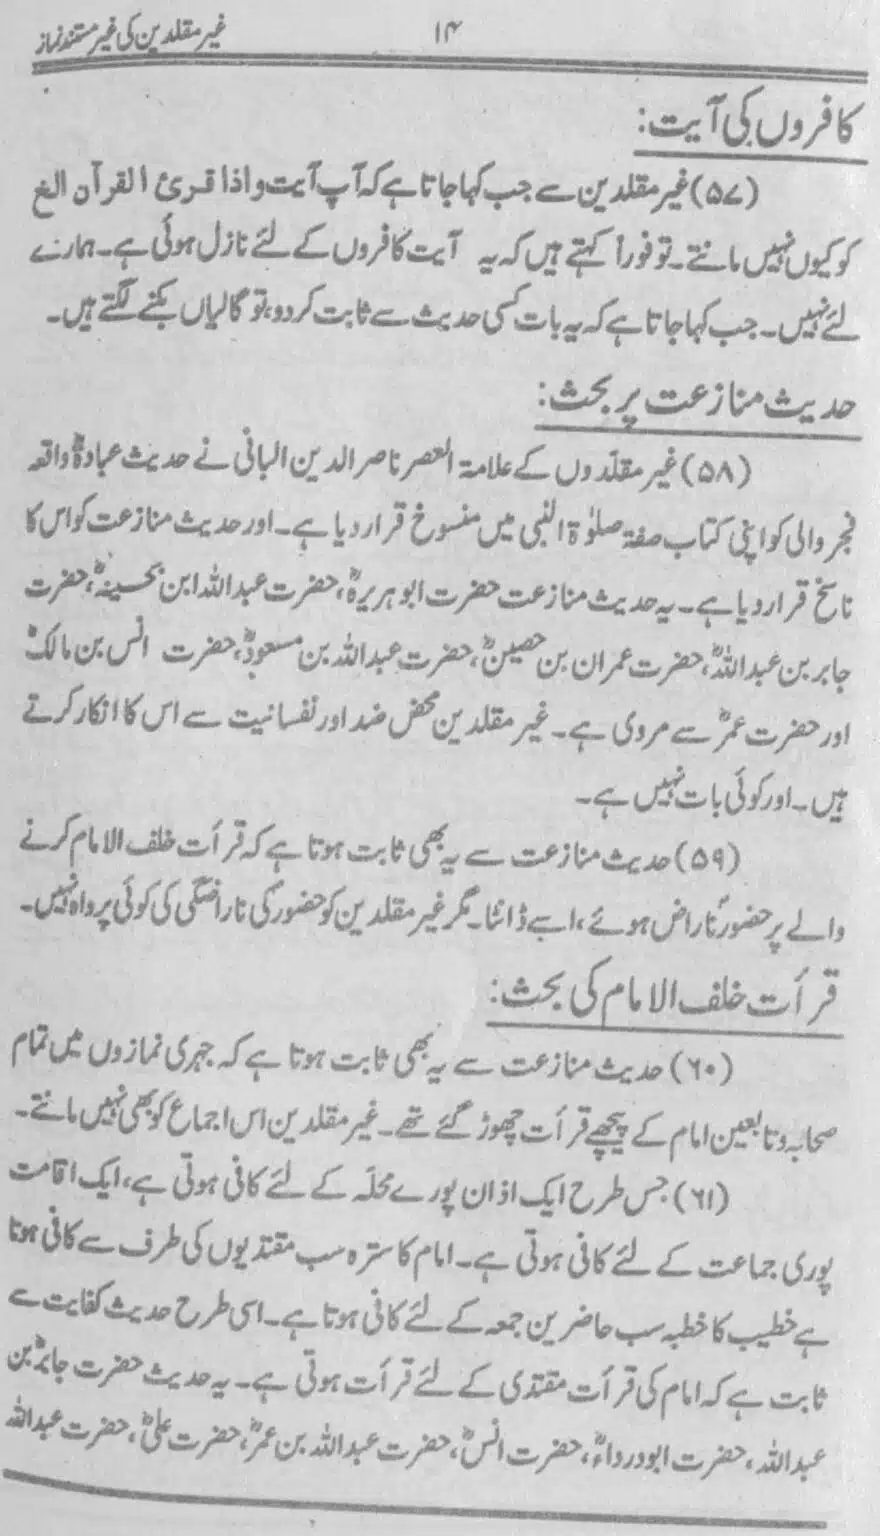 غیر مقلدین کی غیر مستند نماز
۱۴
کافروں کی آیت:
(۵۷) غیر مقلدین سے جب کہا جاتا ہے کہ آپ آیت واذا قرئ القرآن الخ
کو کیوں نہیں مانتے۔ تو فوراً کہتے ہیں کہ یہ آیت کافروں کے لئے نازل ہوئی ہے۔ ہمارے
لئے نہیں۔ جب کہا جاتا ہے کہ یہ بات کسی حدیث سے ثابت کردو، تو گالیاں بکنے لگتے ہیں۔
حدیث منازعت پر بحث:
(۵۸) غیر مقلدوں کے علامۃ العصر ناصر الدین البانی نے حدیث عبادہؓ واقعہ
فجر والی کو اپنی کتاب صفۃ صلوٰۃ النبی میں منسوخ قرار دیا ہے۔ اور حدیث منازعت کو اس کا
ناسخ قرار دیا ہے۔ یہ حدیث منازعت حضرت ابو ہریرہؓ، حضرت عبداللہ ابن بحسینہؓ، حضرت
جابر بن عبداللہؓ، حضرت عمران بن حصینؓ، حضرت عبداللہ بن مسعودؓ، حضرت انس بن مالکؓ
اور حضرت عمرؓ سے مروی ہے۔ غیر مقلدین محض ضد اور نفسانیت سے اس کا انکار کرتے
ہیں۔ اور کوئی بات نہیں ہے۔
(۵۹) حدیث منازعت سے یہ بھی ثابت ہوتا ہے کہ قرأت خلف الامام کرنے
والے پر حضورؐ ناراض ہوئے، اسے ڈانٹا۔ مگر غیر مقلدین کو حضور کی ناراضگی کی کوئی پرواہ نہیں۔
قرأت خلف الامام کی بحث:
(۶۰) حدیث منازعت سے یہ بھی ثابت ہوتا ہے کہ جہری نمازوں میں تمام
صحابہ وتابعین امام کے پیچھے قرأت چھوڑ گئے تھے۔ غیر مقلدین اس اجماع کو بھی نہیں مانتے۔
(۶۱) جس طرح ایک اذان پورے محلّہ کے لئے کافی ہوتی ہے، ایک اقامت
پوری جماعت کے لئے کافی ہوتی ہے۔ امام کا سترہ سب مقتدیوں کی طرف سے کافی ہوتا
ہے خطیب کا خطبہ سب حاضرین جمعہ کے لئے کافی ہوتا ہے۔ اسی طرح حدیث کفایت سے
ثابت ہے کہ امام کی قرأت مقتدی کے لئے قرأت ہوتی ہے۔ یہ حدیث حضرت جابرؓ بن
عبداللہ، حضرت ابودرداءؓ، حضرت انسؓ، حضرت عبداللہ بن عمرؓ، حضرت علیؓ، حضرت عبداللہ